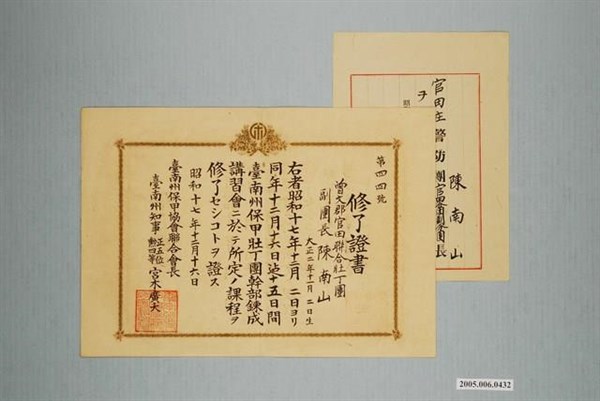 第四四號
修了證書
曾文郡官田聯合壯丁團
副團長 陳南山
大正二年十一月二日生
右者昭和十七年十二月二日ヨリ
同年十二月十六日迄十五日間
臺南州保甲壯丁團幹部鍊成
講習會ニ於テ所定ノ課程ヲ
修了セシコトヲ證ス
昭和十七年十二月十六日
臺南州保甲協會聯合會長
臺南州知事 正五位勳四等 宮木廣大
陳南山
官田庄警防團官田分團副分團長
ヲ
2005.006.0432